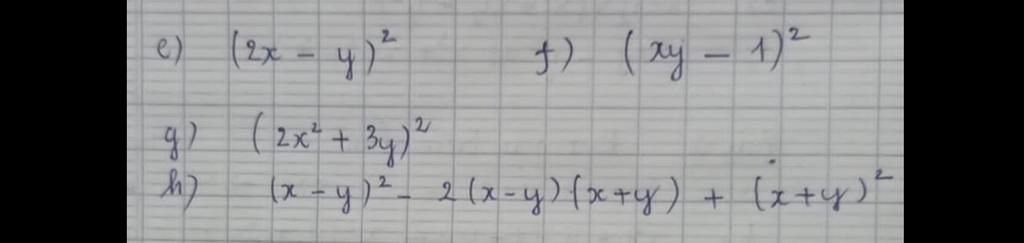 e) (2x - y)² f) (xy - 1)²
g) (2x² + 3y)²
h) (x - y)² - 2(x-y)(x+y) + (x+y)²